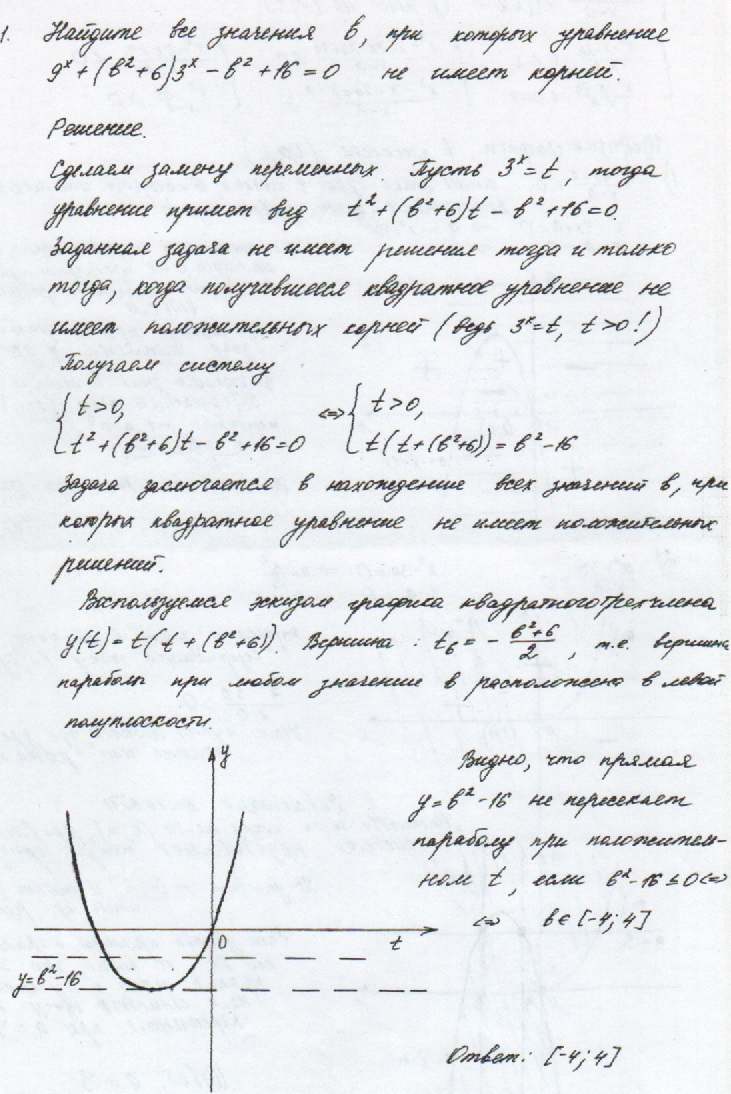 1. Найдите все значения в, при которых уравнение
9ˣ + (в²+6)3ˣ – в² + 16 = 0 не имеет корней.
Решение.
Сделаем замену переменных. Пусть 3ˣ = t, тогда
уравнение примет вид t² + (в²+6)t – в² + 16 = 0.
Заданная задача не имеет решения тогда и только
тогда, когда получившееся квадратное уравнение не
имеет положительных корней (ведь 3ˣ = t, t > 0!)
Получаем систему
{ t > 0, ⇔ { t > 0,
t² + (в²+6)t – в² + 16 = 0 t(t + (в²+6)) = в² – 16
Задача заключается в нахождение всех значений в, при
которых квадратное уравнение не имеет положительных
решений.
Воспользуемся эскизом графика квадратного трехчлена
y(t) = t(t + (в²+6)). Вершина: t₆ = – (в²+6)/2, т.е. вершина
параболы при любом значение в расположена в левой
полуплоскости.
y
Видно, что прямая
y = в² – 16 не пересекает
параболу при положитель-
ном t, если в² – 16 ≤ 0 ⇔
⇔ в ∈ [-4; 4]
0
t
y = в² – 16
Ответ: [-4; 4]